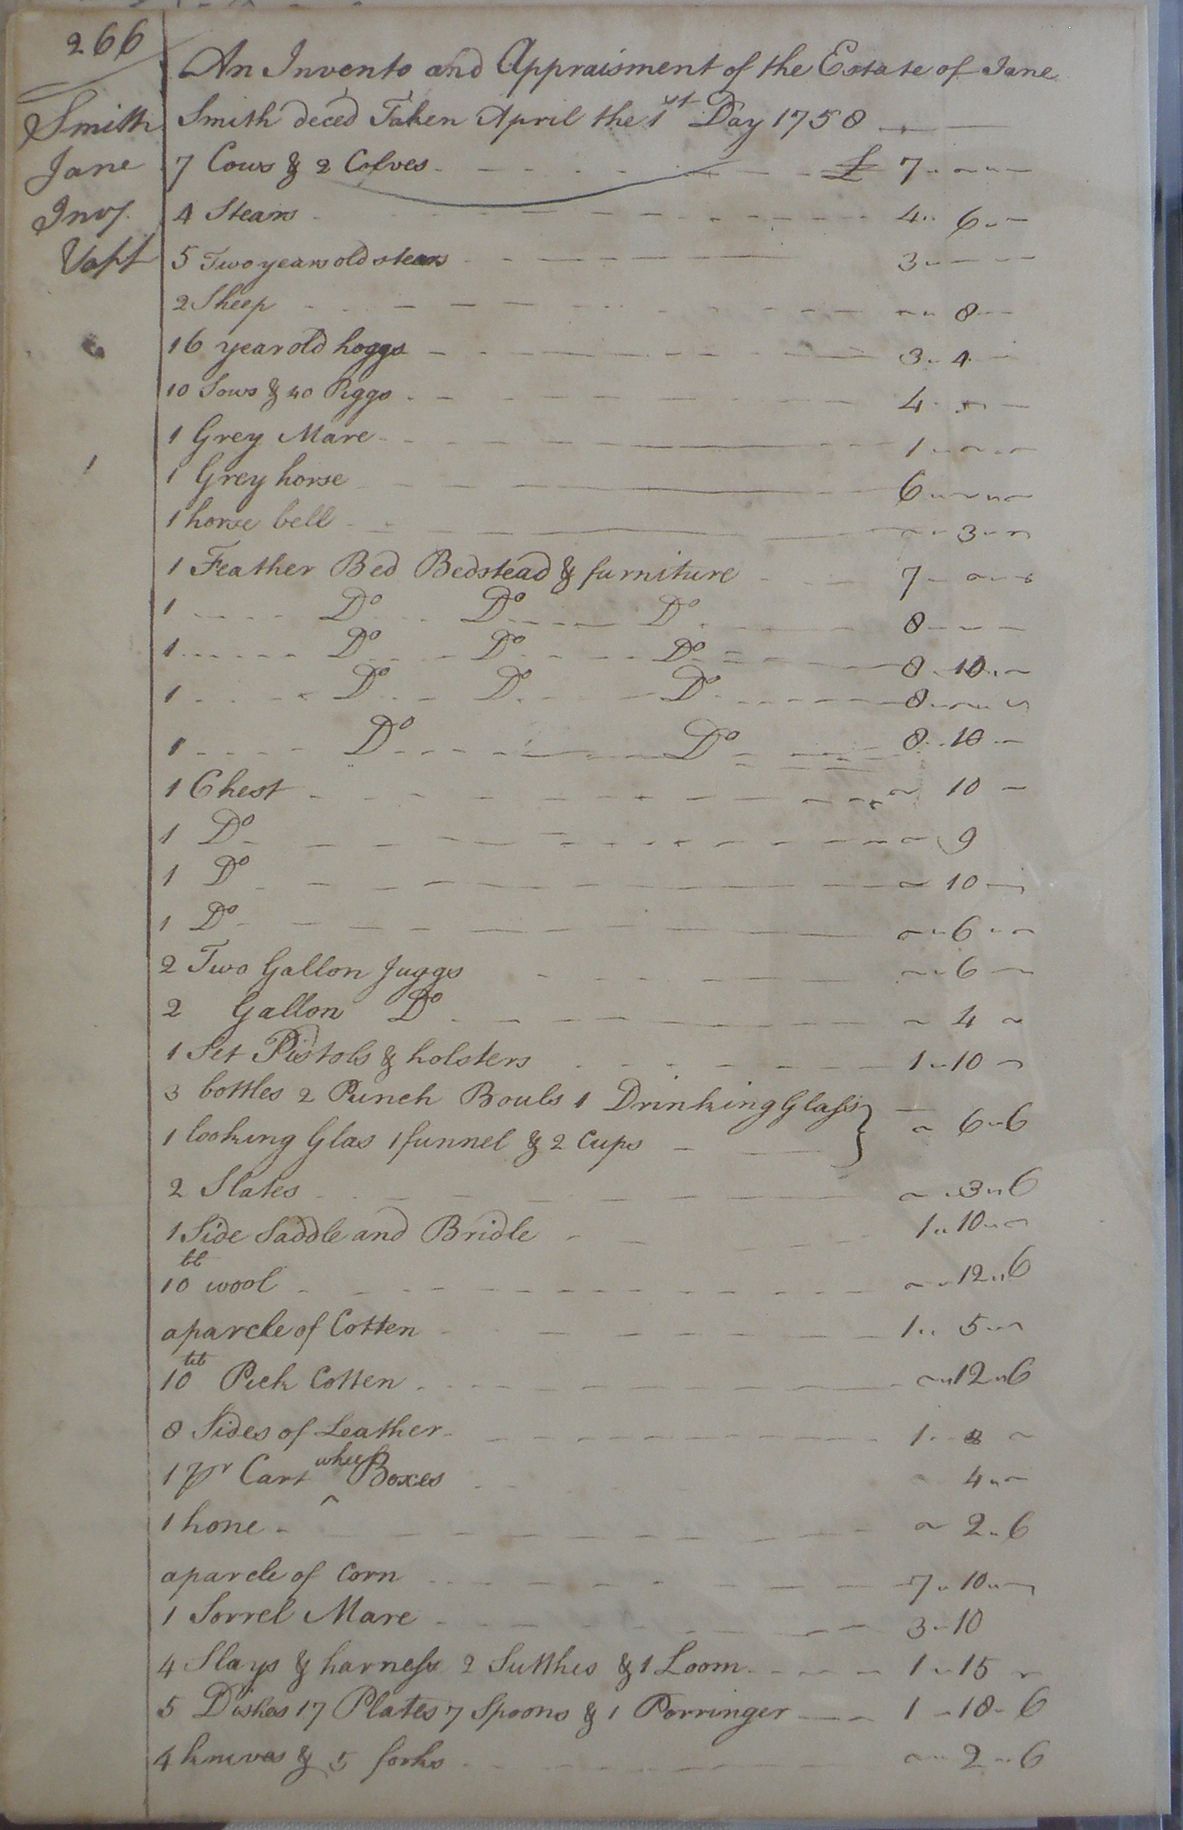 266
An Invento and Appraisment of the Estate of Jane
Smith Smith deced Taken April the 1st Day 1758
Jane 7 Cows & 2 Calves £ 7
Invy. 4 Stears 4 6
5 Two years old stears 3
2 Sheep 8
16 year old hoggs 3 4
10 Sows & 40 Piggs 4
1 Grey Mare 1
1 Grey horse 6
1 horse bell 3
1 Feather Bed Bedstead & furniture 7
1 Do Do Do 8
1 Do Do Do 8 10
1 Do D Do 8
1 Do Do 8 10
1 Chest 10
1 Do 9
1 Do 10
1 Do 6
2 Two Gallon Juggs 6
2 Gallon Do 4
1 Set Pistols & holsters 1 10
3 bottles 2 Punch Bouls 1 Drinking Glass
1 looking Glas 1 funnel & 2 Cups } 6 6
2 Slates 3 6
1 Side Saddle and Bridle 1 10
10 lb wool 12 6
a parcle of Cotten 1 5
10 lb Pick Cotten 12 6
8 Sides of Leather 1 8
1 pr Cart wheel Boxes 4
1 hone 2 6
a parcle of Corn 7 10
1 Sorrel Mare 3 10
4 Slays & harness 2 & 1 Loom 1 15
5 Dishes 17 Plates 7 Spoons & 1 Porringer 1 18 6
4 knives & 5 forks 2 6